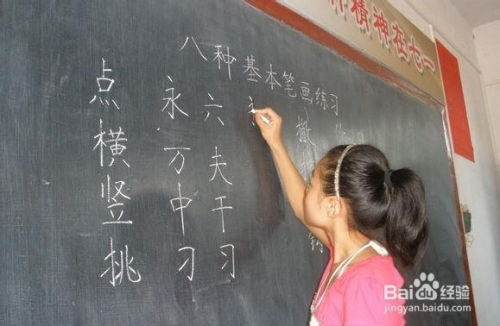 精神在七一
八种基本笔画练习
点 永 六
横 万 夫
竖 中 干
挑 刁 习
撇
Bai 经验
jingyan.baidu.com